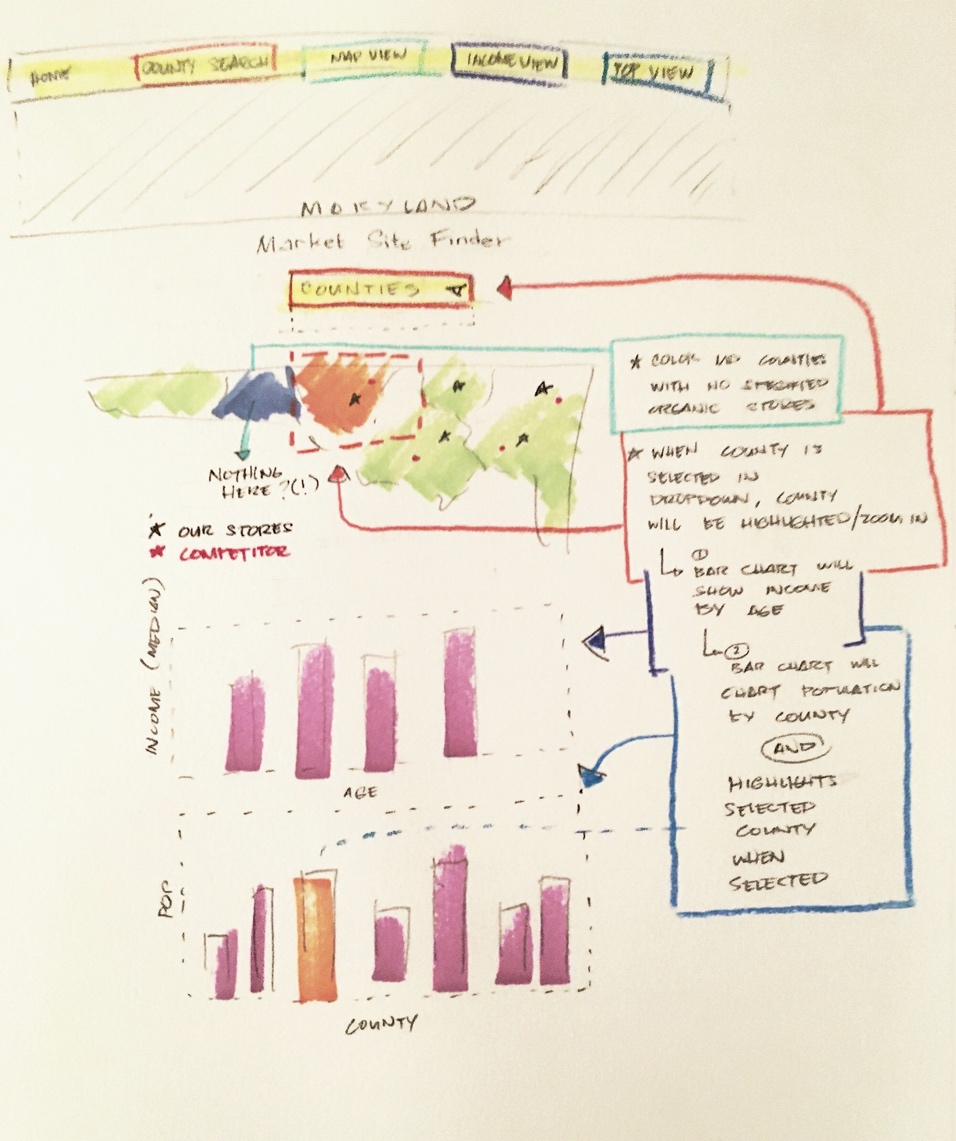 HOME
COUNTY SEARCH
MAP VIEW
INCOME VIEW
POP VIEW
MARYLAND
Market Site Finder
COUNTIES
NOTHING
HERE?(!)
★ OUR STORES
★ COMPETITOR
★ COLOR COUNTIES
WITH NO SPECIFIED
ORGANIC STORES
★ WHEN COUNTY IS
SELECTED IN
DROPDOWN, COUNTY
WILL BE HIGHLIGHTED/ZOOM IN
①
BAR CHART WILL
SHOW INCOME
BY AGE
②
BAR CHART WILL
CHART POPULATION
BY COUNTY
AND
HIGHLIGHTS
SELECTED
COUNTY
WHEN
SELECTED
INCOME (MEDIAN)
AGE
POP
COUNTY